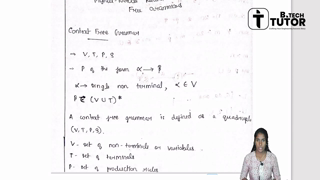 Free Grammars
B.TECH
TUTOR
Context Free Grammar
→ V, T, P, S
→ P of the form α → β
α → single non terminal, α ∈ V
β ∈ (V ∪ T)*
A context free grammar is defined as a quadruple
(V, T, P, S).
V - set of non-terminals or variables
T - set of terminals
P - set of production rules